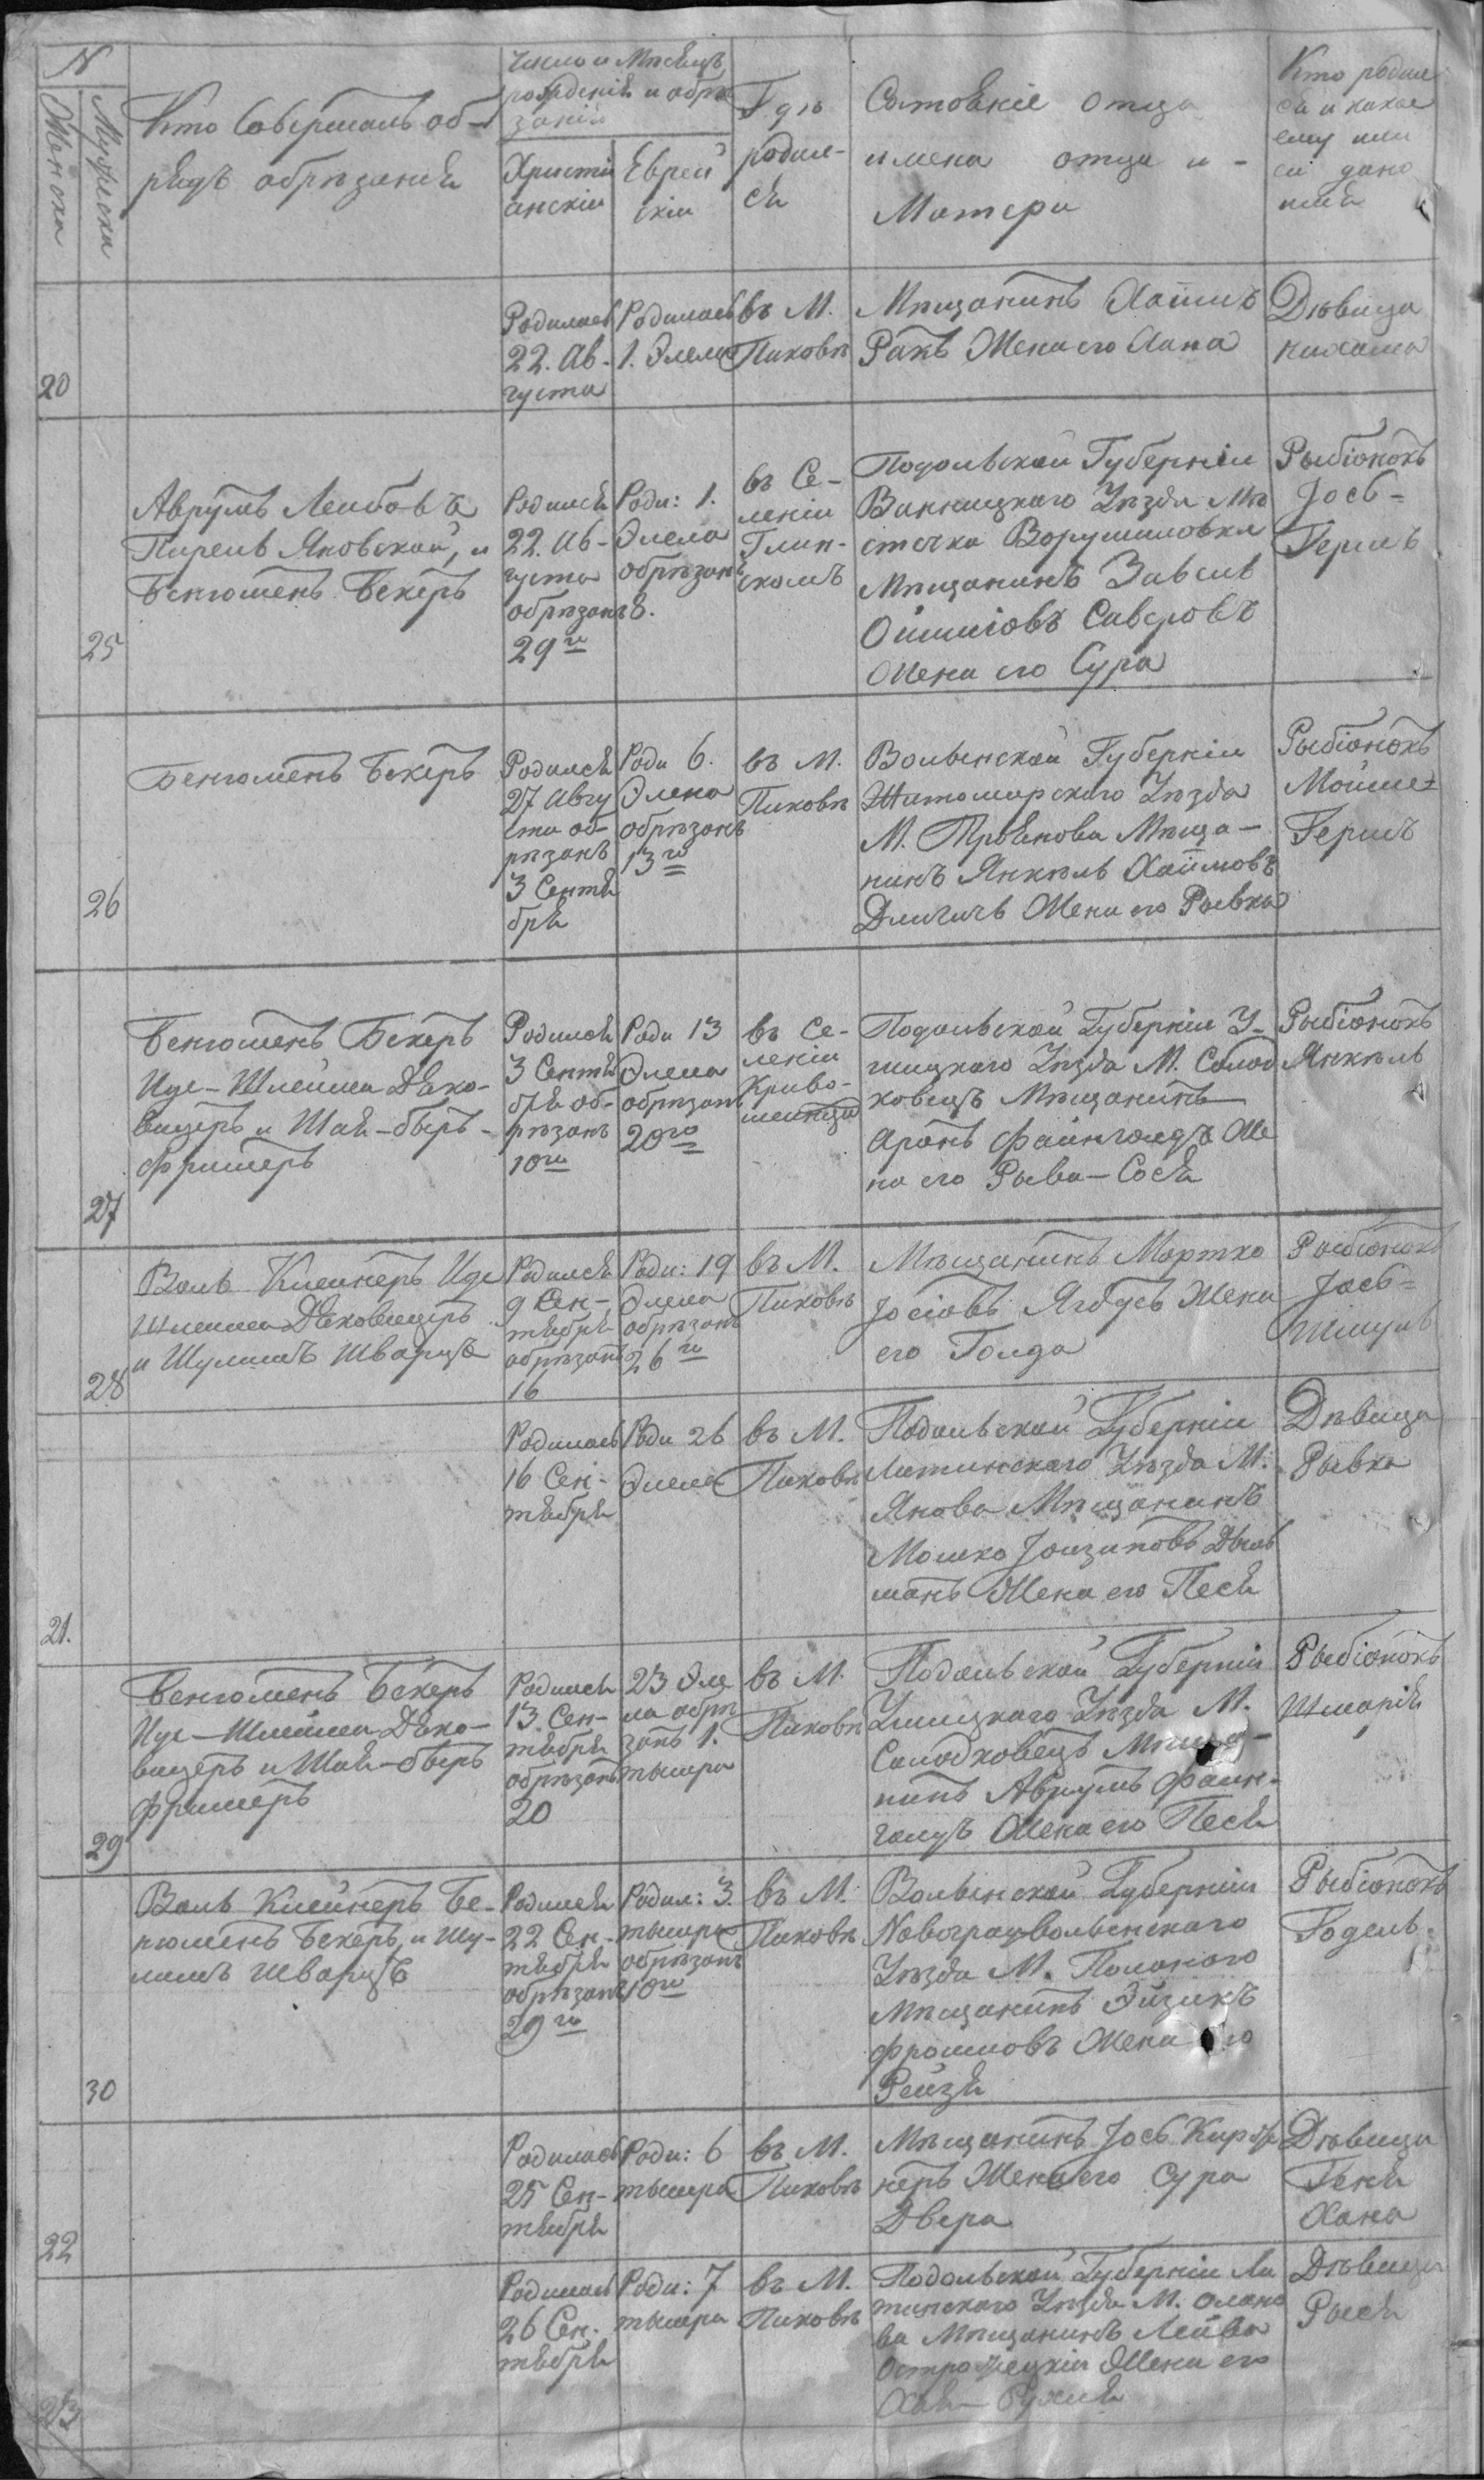 N
Женска
Мужеска
Кто Совершалъ об-
рядъ обрѣзанія
Число и Мѣсяцъ
рожденія и обрѣ
занія
Христі
анскіи
Еврей
скіи
Гдѣ
родил-
ся
Состоянiе отца
имена отца и -
Матери
Кто родил
ся и какое
ему или
ей дано
имя
20
Родилась
22. Ав-
густа
Родилась
1. Элела
въ М.
Пиковѣ
Мѣщанинъ Хаимъ
Ракъ Жена его Хана
Дѣвица
25
Аврумъ Леибовъ
Яновской, и
Бенюменъ Бекеръ
Родился
22. Ав-
густа
обрѣзанъ
29го
Роди: 1.
Элела
обрѣзанъ
8.
въ Се-
леніи
Глин-
скомъ
Подольской Губерніи
Винницкаго Уѣзда Мѣ
стечка Ворушиловки
Мѣщанинъ
Жена его Сура
Рыбіонокъ
Іось=
Гершъ
26
Бенюменъ Бекеръ
Родился
27 Авгу
ста об-
рѣзанъ
3 Сентя
бря
Роди 6.
Элела
обрѣзанъ
13го
въ М.
Пиковѣ
Волынской Губерніи
Житомирского Уѣзда
М. Троянова Мѣща-
нинъ Янкель Хаимовъ
Жена его Рывка
Рыбіонокъ
Мойше=
Гершъ
27
Бенюменъ Бекеръ
Иде-Шлейма Дахо-
вицеръ и Шая-Беръ-
Фришеръ
Родился
3 Сентя
бря об-
рѣзанъ
10го
Роди 13
Элела
обрѣзанъ
20го
въ Се-
леніи
Криво-
Подольской Губерніи У-
шицкаго Уѣзда М. Солод
ковецъ Мѣщанинъ
Аронъ Файнголцъ Же
на его Рыва-Сося
Рыбіонокъ
Янкель
28
Волъ Клейнеръ Иде
Шлейма Даховицеръ
и Шулимъ Шварцъ
Родился
9 Сен-
тября
обрѣзанъ
16
Роди: 19
Элела
обрѣзанъ
26го
въ М.
Пиковѣ
Мѣщанинъ Мортко
Іосіовъ Жена
его Голда
Рыбіонокъ
Іось=
21.
Родилась
16 Сен-
тября
Роди 26
Элела
въ М.
Пиковѣ
Подольской Губерніи
Литинскаго Уѣзда М.
Янова Мѣщанинъ
Мошко
Жена его Песя
Дѣвица
Рывка
29
Бенюменъ Бекеръ
Иде-Шлейма Дахо-
вицеръ и Шая-Беръ
Фришеръ
Родился
13 Сен-
тября
обрѣзанъ
20
23 Эле
ла обрѣ
занъ 1.
тышера
въ М.
Пиковѣ
Подольской Губерніи
Ушицкаго Уѣзда М.
Солодковецъ Мѣща-
нинъ Аврумъ Фаин-
голцъ Жена его Песя
Рыбіонокъ
Шмарія
30
Волъ Клейнеръ Бе-
нюменъ Бекеръ, и Шу-
лимъ Шварцъ
Родился
22 Сен-
тября
обрѣзанъ
29го
Родил: 3.
тышера
обрѣзанъ
10го
въ М.
Пиковѣ
Волынской Губерніи
Новоградволынскаго
Уѣзда М. Полонаго
Мѣщанинъ Эйзикъ
Фроимовъ Жена его
Рейзя
Рыбіонокъ
Годель.
22
Родилась
25 Сен-
тября
Роди: 6
тышера
въ М.
Пиковѣ
Мѣщанинъ Іось Кирж
неръ Жена его Сура
Двера
Дѣвица
Геня
Хана
23
Родилась
26 Сен.
тября
Роди: 7
тышера
въ М.
Пиковѣ
Подольской Губерніи Ли
тинскаго Уѣзда М.
ва Мѣщанинъ Лейба
Жена его
Хая-
Дѣвица
Рыся